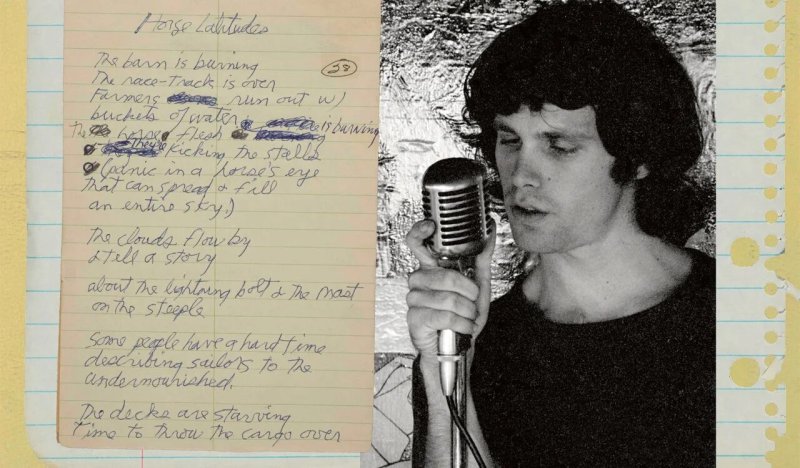 Horse Latitudes
38
The barn is burning
The race-track is over
Farmers run out w/
buckets of water
the horse flesh is burning
they're Kicking the stalls
(panic in a horse's eye
that can spread & fill
an entire sky.)
the clouds flow by
& tell a story
about the lightning bolt & the mast
on the steeple
Some people have a hard time
describing sailors to the
undernourished.
The decks are starving
Time to throw the cargo over